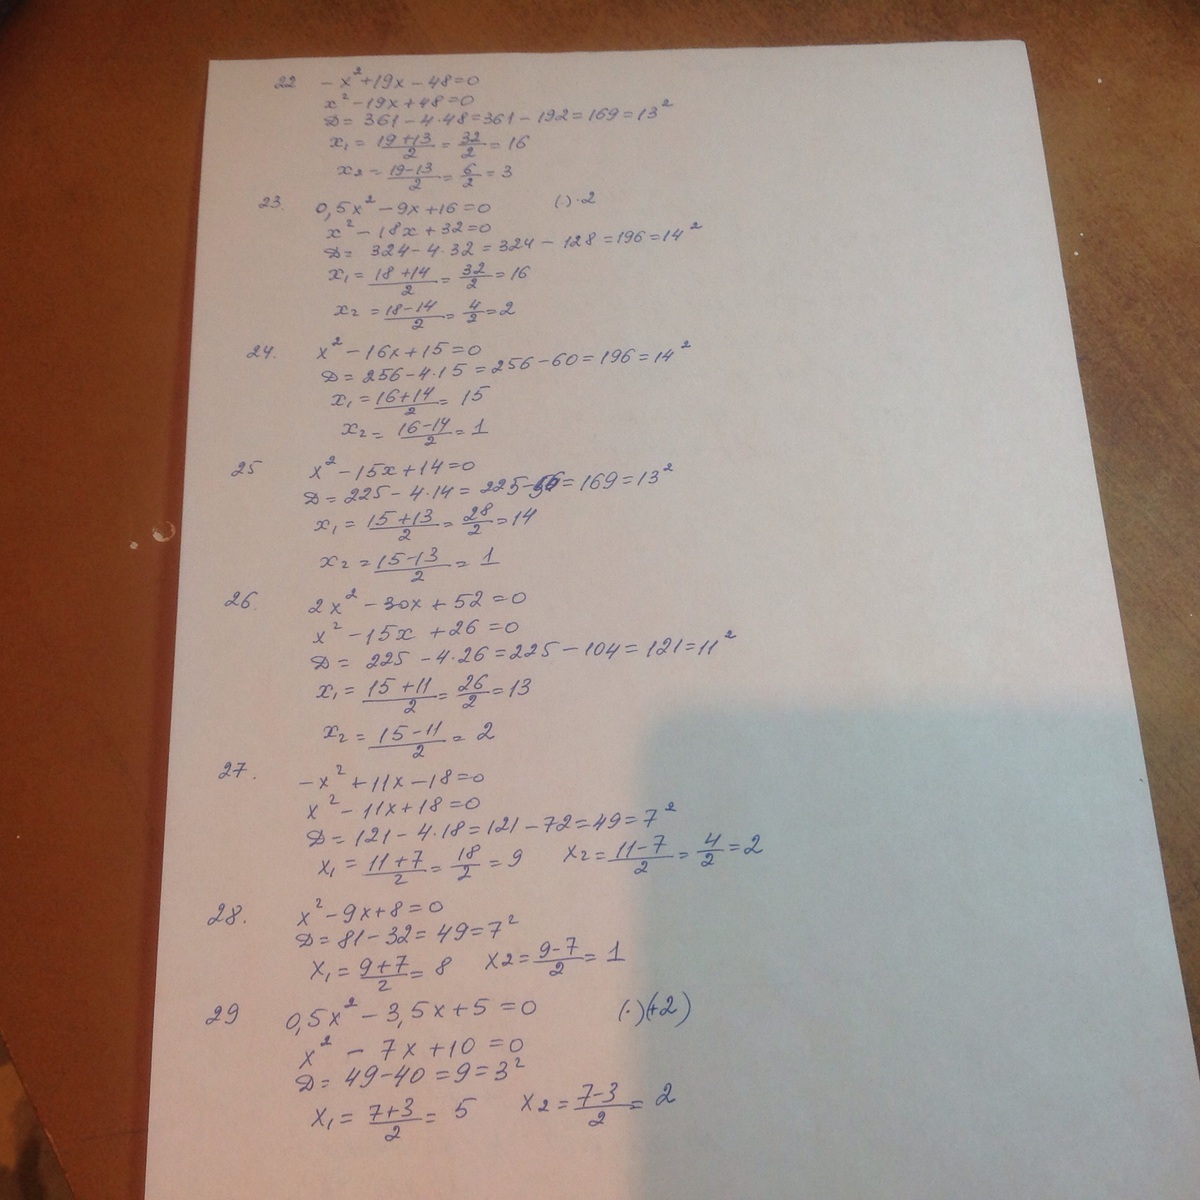 22 -x²+19x-48=0
x²-19x+48=0
D= 361-4·48=361-192=169=13²
x₁= (19+13)/2 = 32/2 = 16
x₂ = (19-13)/2 = 6/2 = 3
23. 0,5x²-9x+16=0 (·)·2
x²-18x+32=0
D= 324-4·32=324-128=196=14²
x₁= (18+14)/2 = 32/2 = 16
x₂ = (18-14)/2 = 4/2 = 2
24. x²-16x+15=0
D=256-4·15=256-60=196=14²
x₁= (16+14)/2 = 15
x₂= (16-14)/2 = 1
25 x²-15x+14=0
D=225-4·14=225-56=169=13²
x₁= (15+13)/2 = 28/2 = 14
x₂ = (15-13)/2 = 1
26. 2x²-30x+52=0
x²-15x+26=0
D= 225-4·26=225-104=121=11²
x₁= (15+11)/2 = 26/2 = 13
x₂= (15-11)/2 = 2
27. -x²+11x-18=0
x²-11x+18=0
D=121-4·18=121-72=49=7²
x₁= (11+7)/2 = 18/2 = 9 x₂= (11-7)/2 = 4/2 = 2
28. x²-9x+8=0
D=81-32=49=7²
x₁= (9+7)/2 = 8 x2= (9-7)/2 = 1
29 0,5x²-3,5x+5=0 (·)(+2)
x²-7x+10=0
D= 49-40=9=3²
x₁= (7+3)/2 = 5 x₂= (7-3)/2 = 2